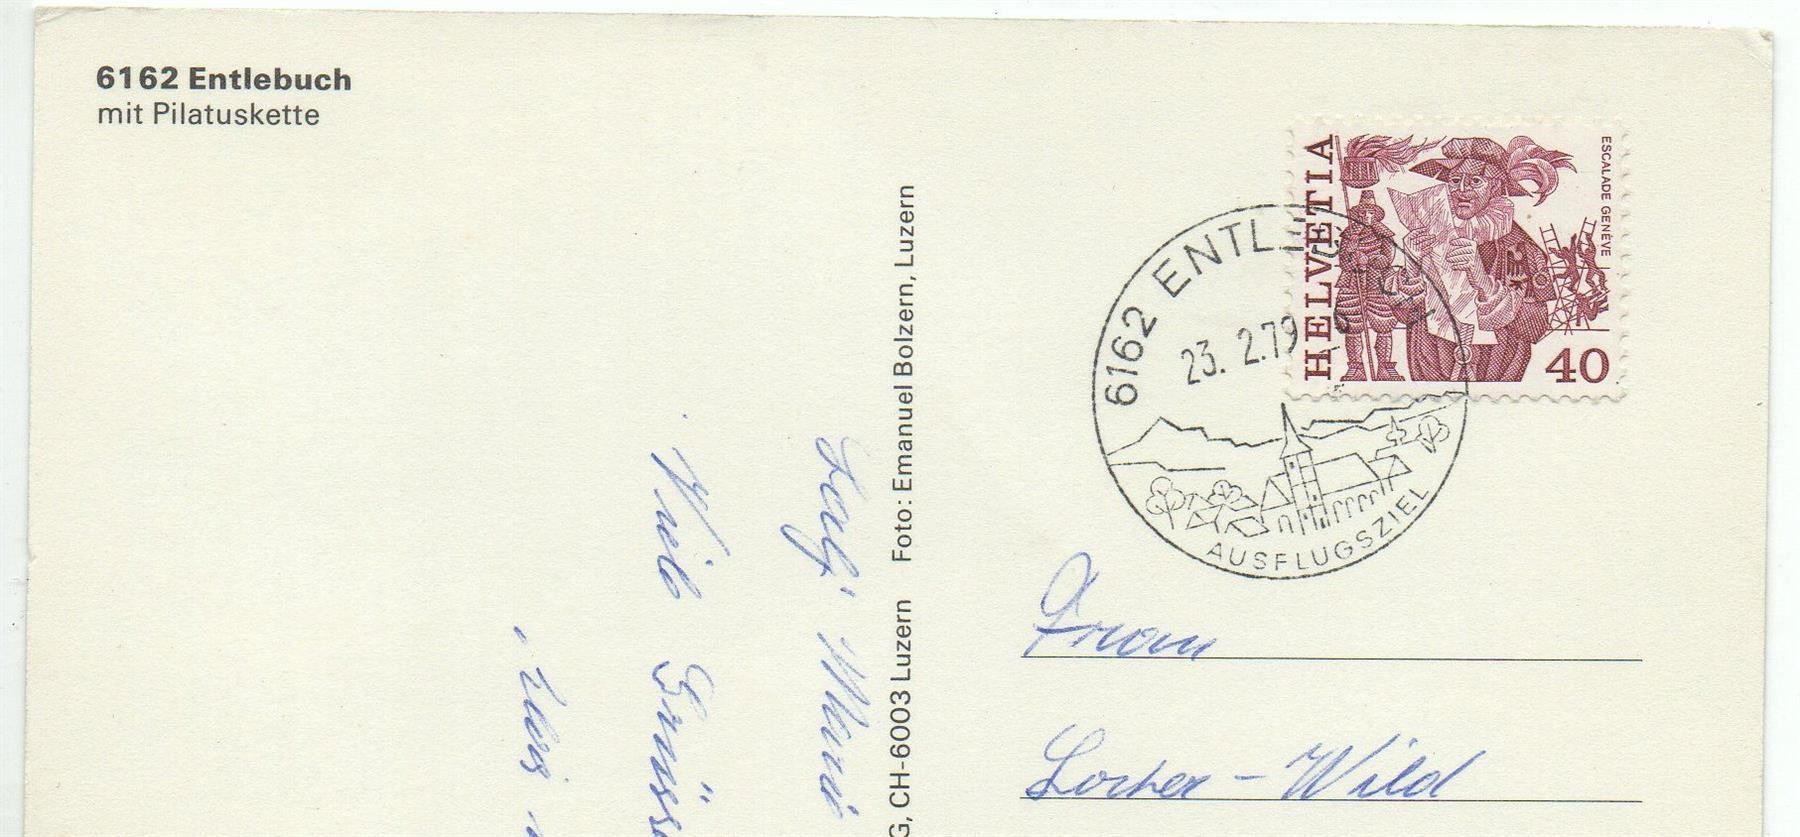 6162 Entlebuch
mit Pilatuskette
HELVETIA
ESCALADE GENÈVE
40
6162 ENTLEBUCH
23. 2.79
AUSFLUGSZIEL
G, CH-6003 Luzern Foto: Emanuel Bolzern, Luzern
Viele Grüsse
Frau
Locher-Wild